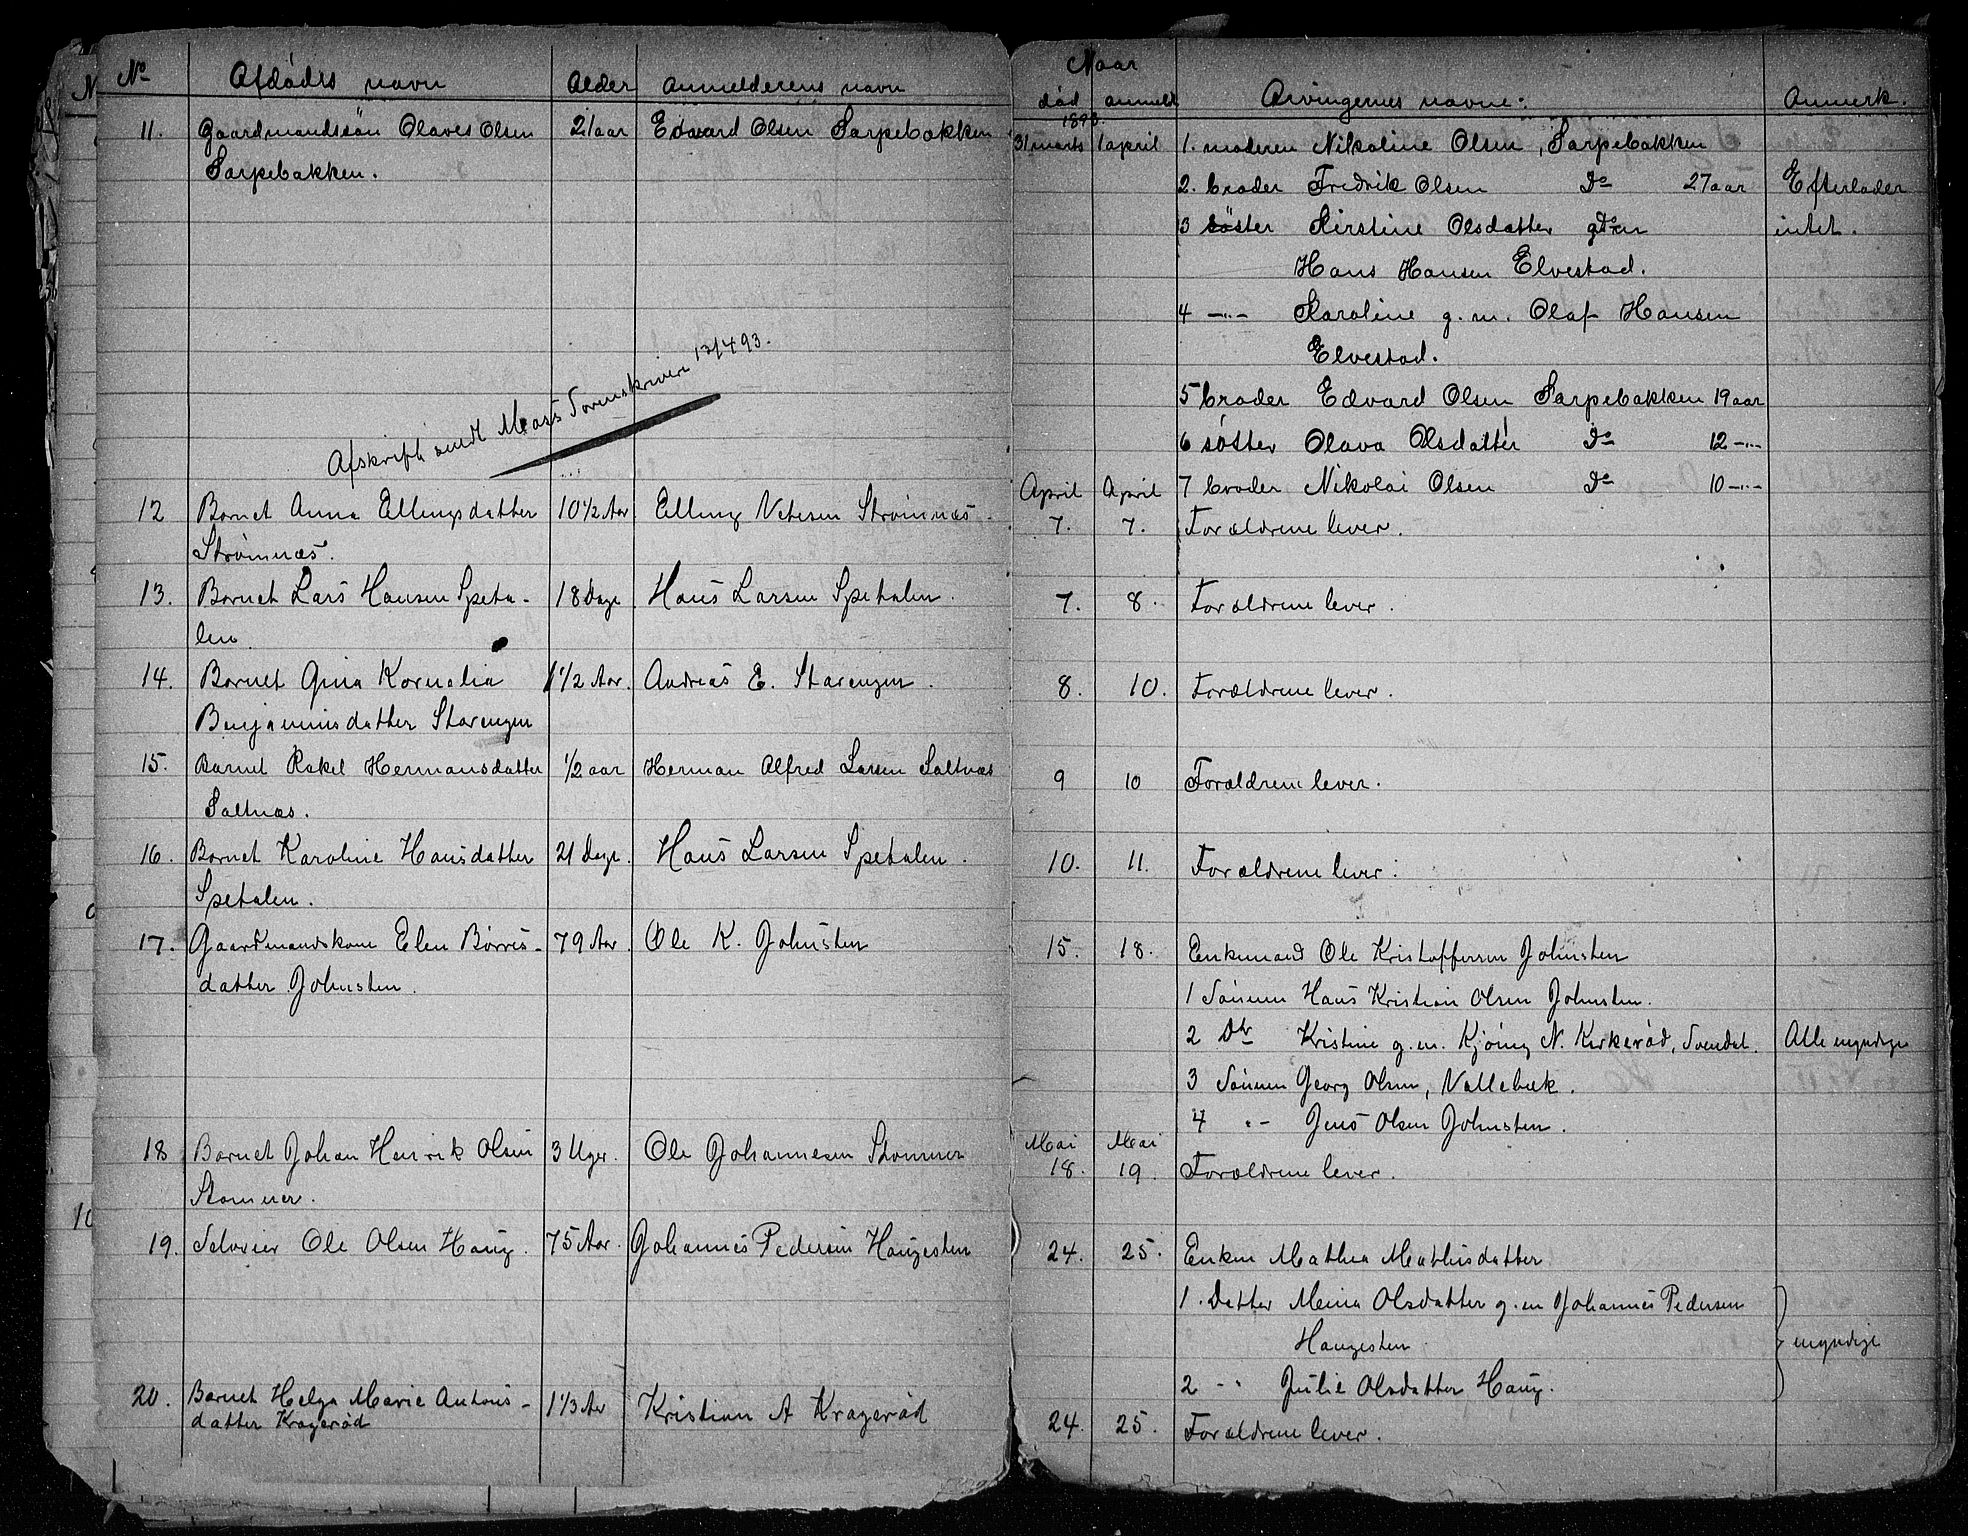 No Afdødes navn Alder Anmelderens navn
11. Gaardmandssøn Olaves Olsen 21 aar Edvard Olsen Sarpebakken
Sarpebakken.
Afskrift sendt Moss Sorenskriveri 13/4 93.
12 Barnet Anna Ellingsdatter 10 1/2 Aar Elling Strømnæs.
Strømnæs.
13. Barnet Lars Hansen Speta- 18 Dage Hans Larsen Spetalen.
len
14. Barnet Gina Kornelia 1 1/2 Aar. Andreas E. Starengen.
Benjaminsdatter Starengen
15. Barnet Rakel Hermansdatter 1/2 aar Herman Alfred Larsen Saltnæs
Saltnæs.
16. Barnet Karoline Hansdatter 21 Dage. Hans Larsen Spetalen.
Spetalen.
17. Gaardmandskone Elen Børres- 79 Aar. Ole K. Johnsten
datter Johnsten.
18 Barnet Johan Henrik Olsen 3 Uger. Ole Johannesen Stommer
Stommer.
19. Selveier Ole Olsen Haug. 75 Aar. Johannes Pedersen Haugesten
20. Barnet Helga Marie Antons- 1 1/3 Aar Kristian A Kragerød
datter Kragerød
Naar
død anmeldt Arvingernes navne: Anmerk.
1893.
31 marts 1 april 1. moderen Nikoline Olsen, Sarpebakken
2. broder Fredrik Olsen Do 27 aar Efterlader
3 søster Kirstine Olsdatter gift m intet.
Hans Hansen Elvestad.
4 -"- Karoline g. m. Olaf Hansen
Elvestad.
5 broder Edvard Olsen Sarpebakken 19 aar
6 søster Olava Olsdatter Do 12 -"-
April April 7 broder Nikolai Olsen Do 10 -"-
7. 7. Forældrene lever.
7. 8. Forældrene lever.
8. 10. Forældrene lever.
9 10 Forældrene lever.
10. 11. Forældrene lever.
15. 18. Enkemand Ole Kristoffersen Johnsten
1 Sønnen Hans Kristian Olsen Johnsten.
2 Dtr Kristine g. m. N. Kirkerød, Svendal. Alle myndige
3 Sønnen Georg Olsen, Vallebæk.
4 "- Jens Olsen Johnsten.
Mai Mai
18. 19. Forældrene lever.
24. 25. Enken Mathea Mathisdatter
1. Datter Mina Olsdatter g. m Johannes Pedersen
Haugesten myndige
2 - " Julie Olsdatter Haug.
24. 25. Forældrene lever.